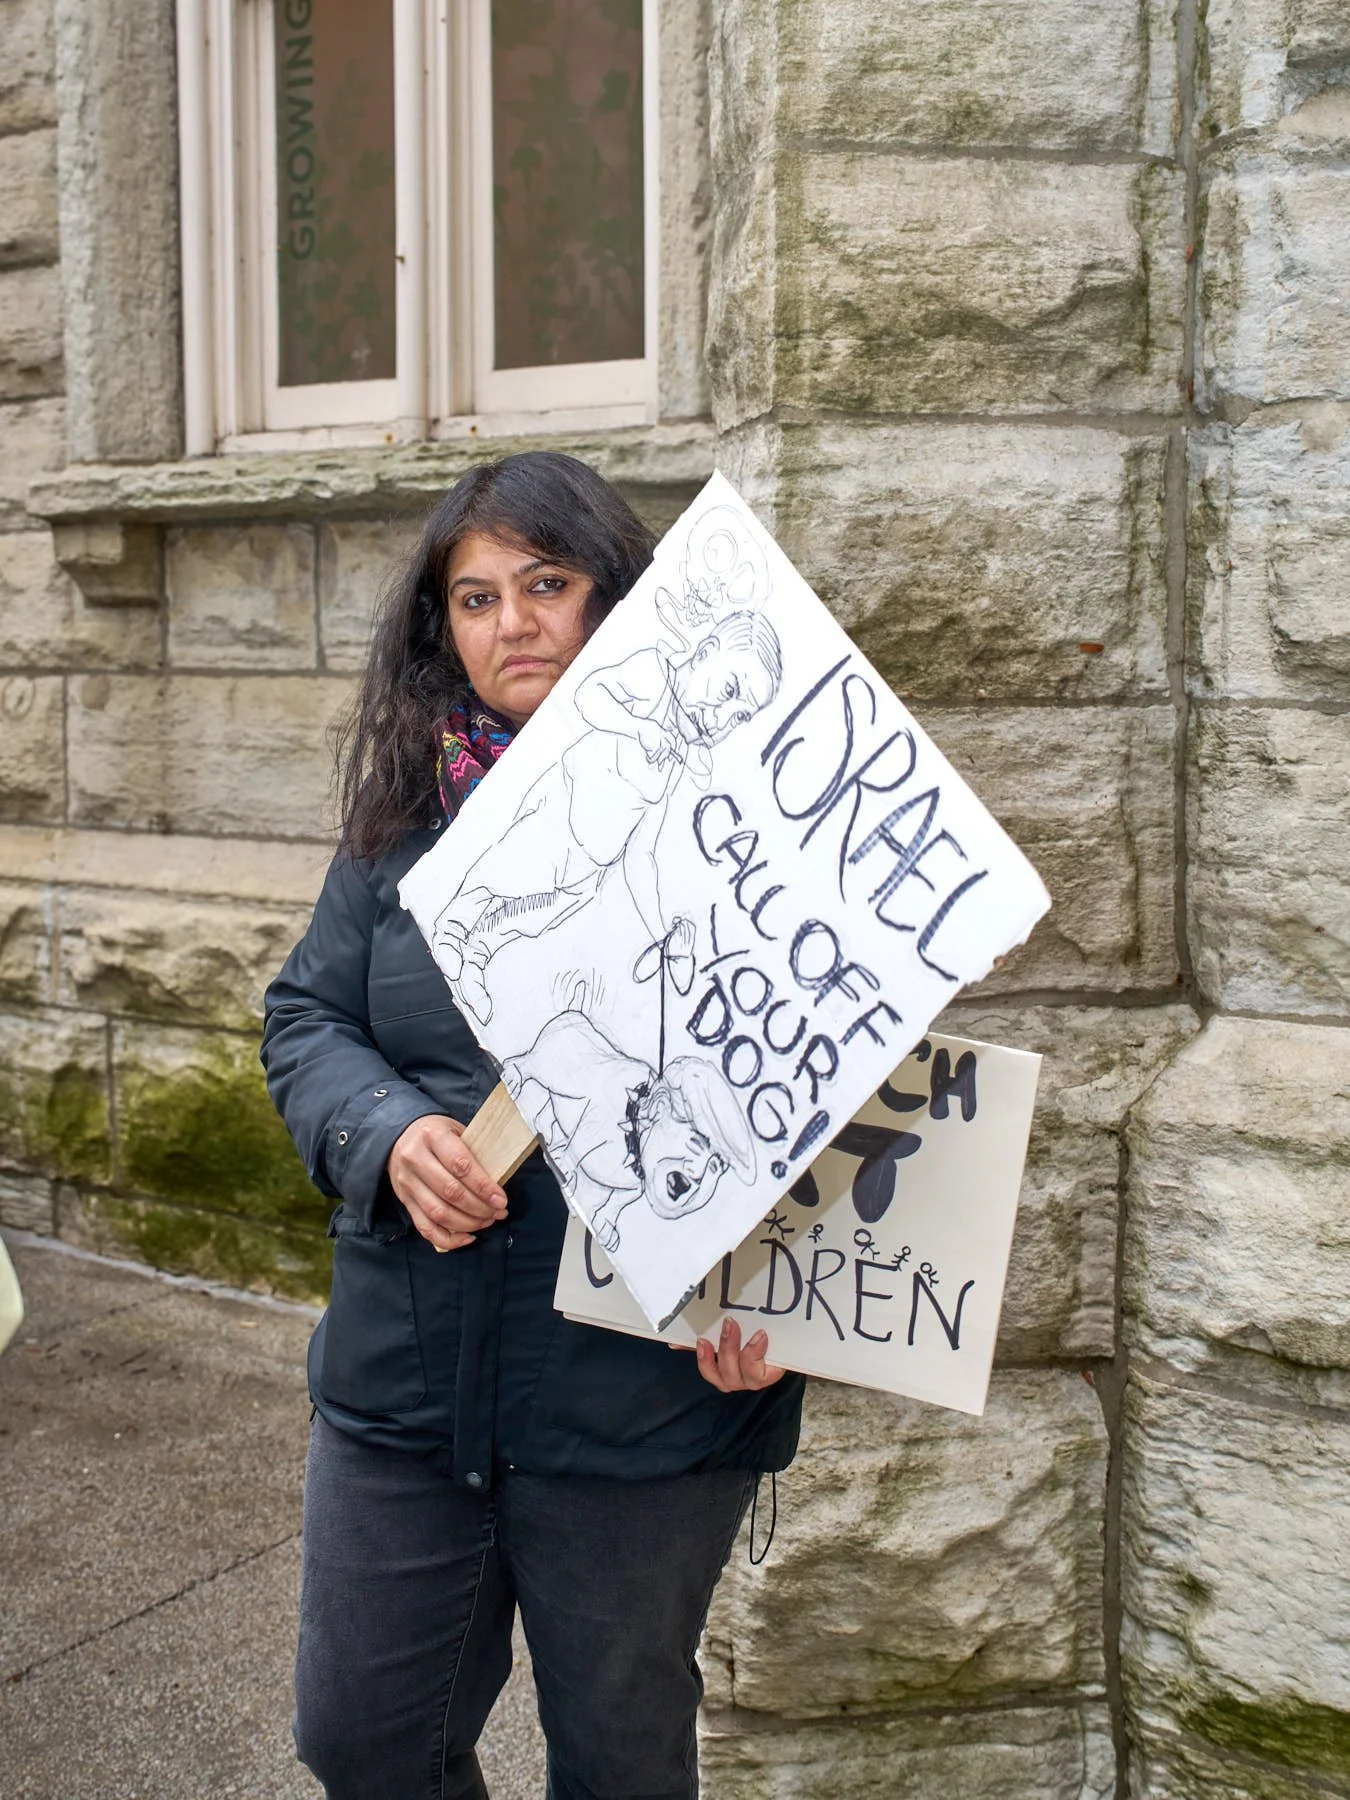 GROWING
ISRAEL
CALL OFF
YOUR
DOG!
CHILDREN